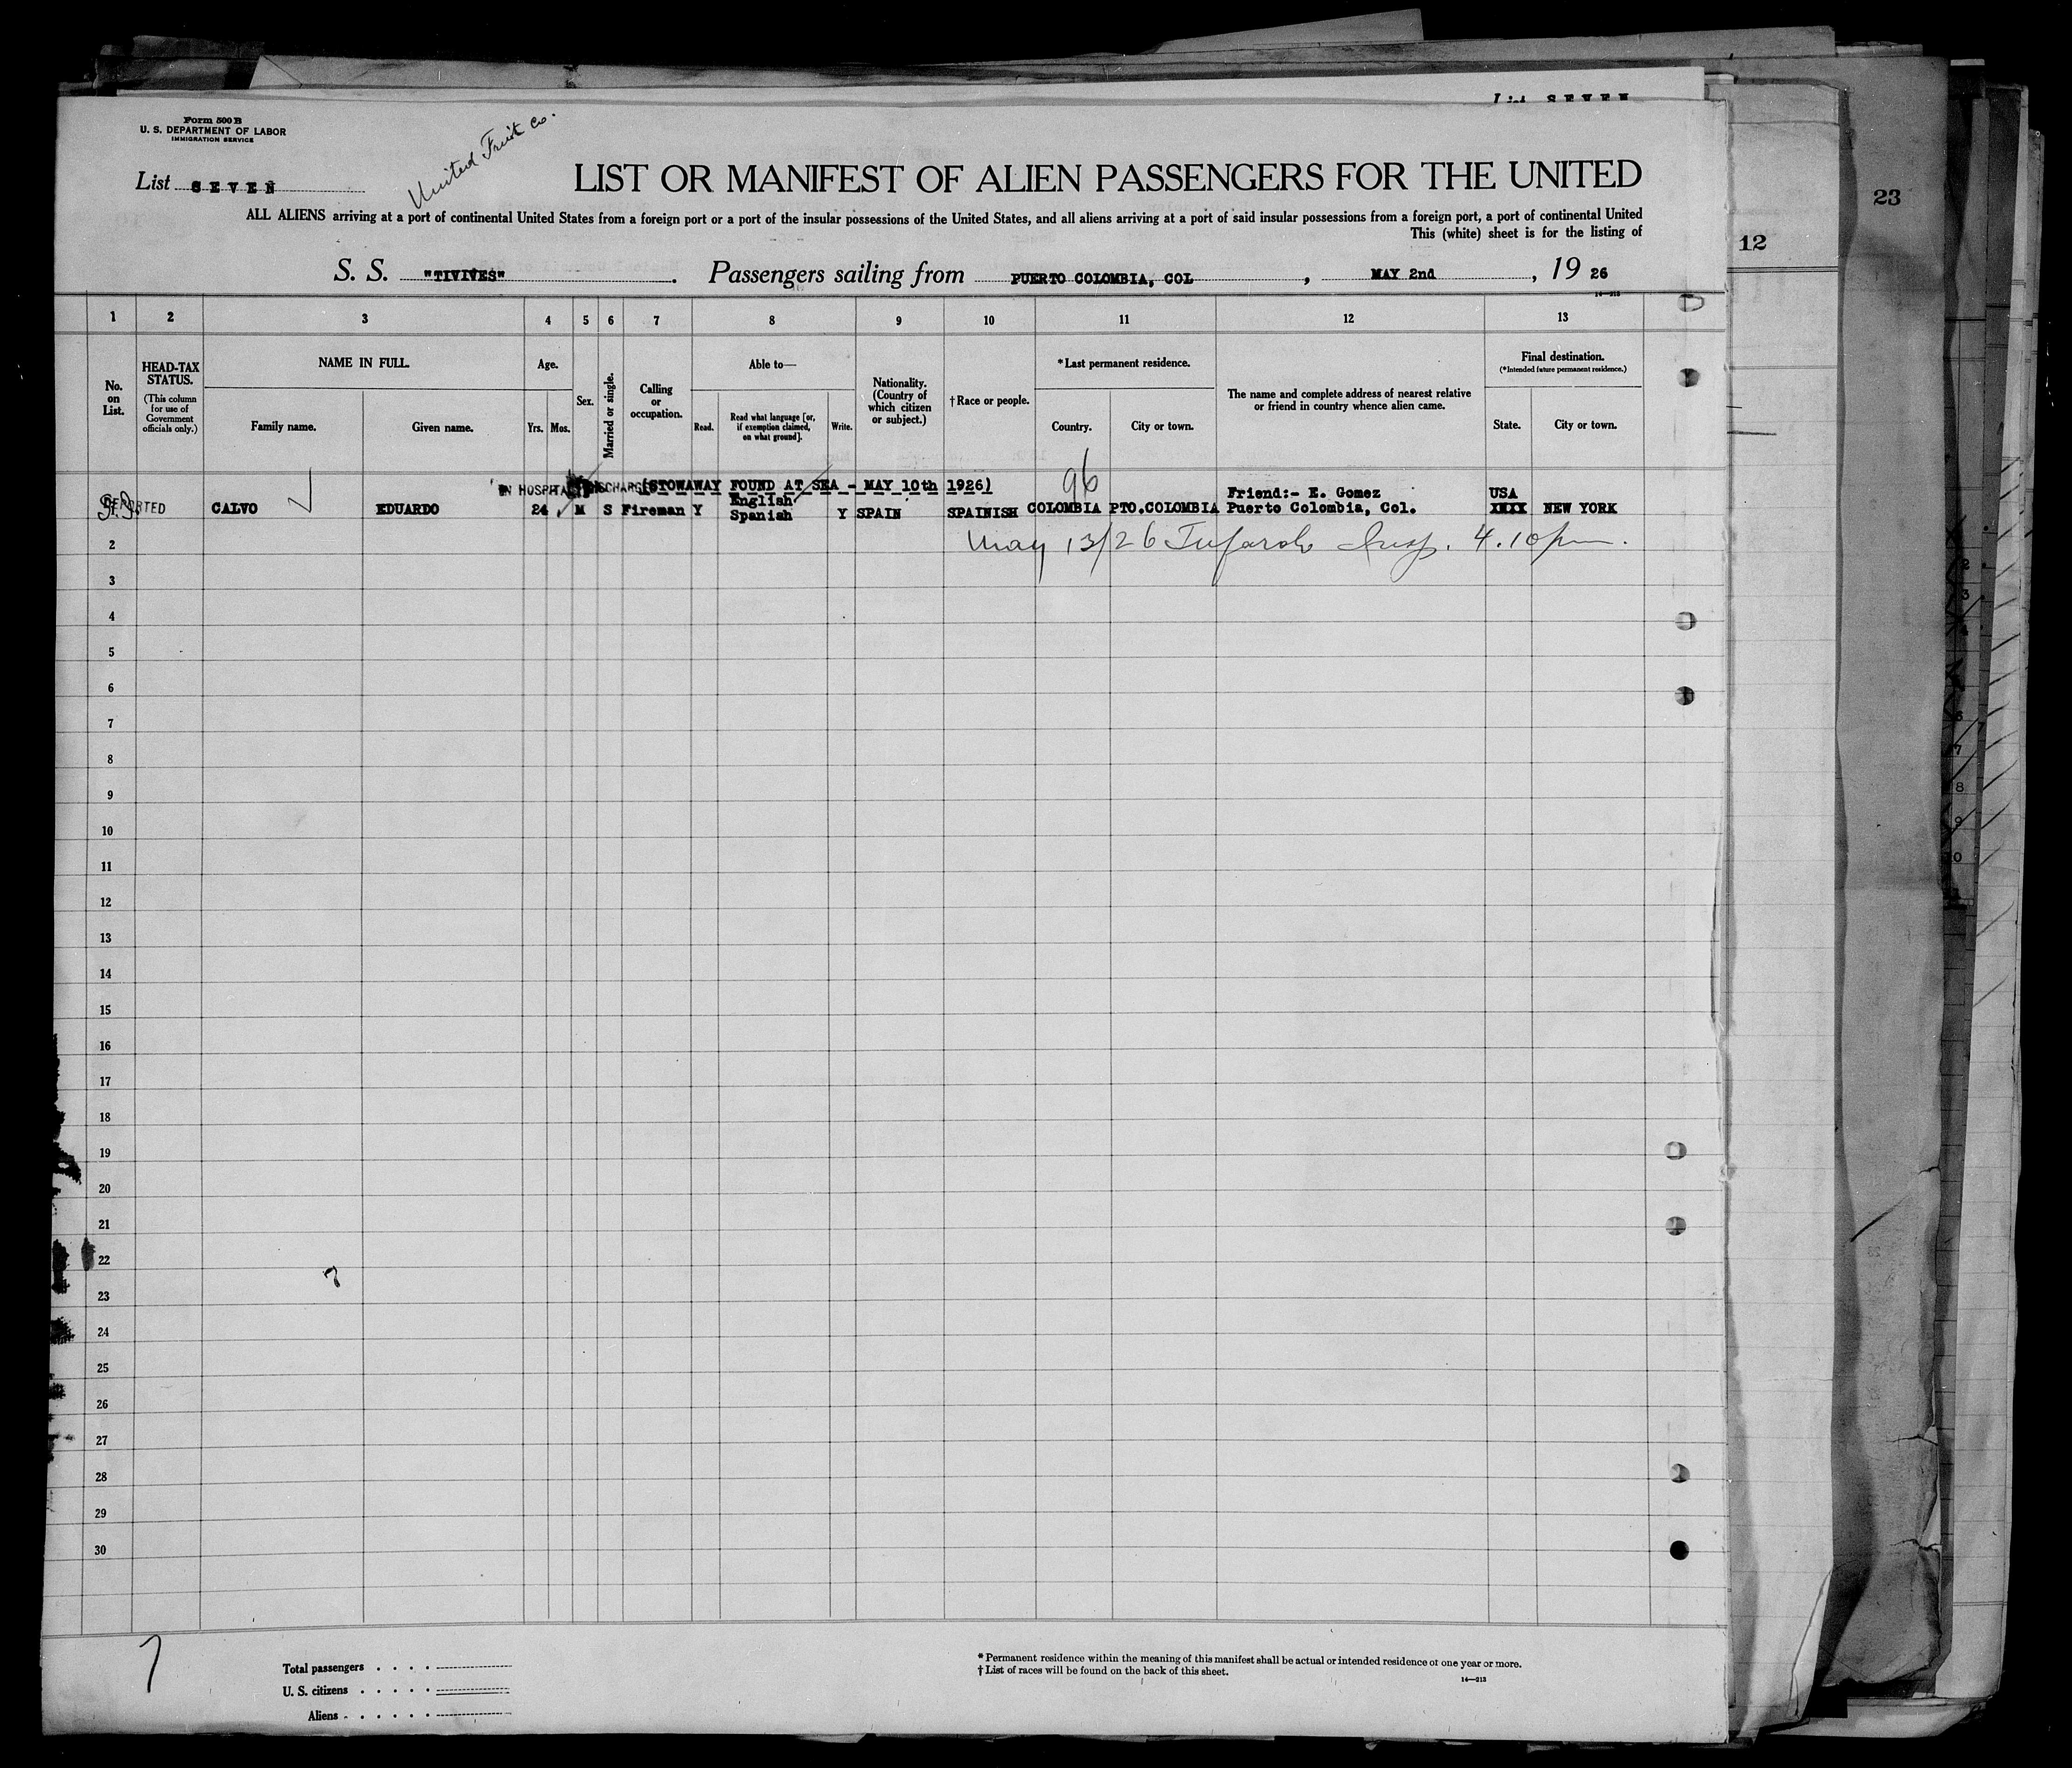 List SEVEN
Form 500 B
U. S. DEPARTMENT OF LABOR
IMMIGRATION SERVICE
United Fruit Co.
List SEVEN
LIST OR MANIFEST OF ALIEN PASSENGERS FOR THE UNITED
ALL ALIENS arriving at a port of continental United States from a foreign port or a port of the insular possessions of the United States, and all aliens arriving at a port of said insular possessions from a foreign port, a port of continental United
This (white) sheet is for the listing of
S. S. "TIVIVES". Passengers sailing from PUERTO COLOMBIA, COL, MAY 2nd, 19 26
14—213
1 2 3 4 5 6 7 8 9 10 11 12 13
No. on List.
HEAD-TAX STATUS.
(This column for use of Government officials only.)
NAME IN FULL.
Family name.
Given name.
Age.
Yrs.
Mos.
Sex.
Married or single.
Calling or occupation.
Able to—
Read.
Read what language [or, if exemption claimed, on what ground].
Write.
Nationality. (Country of which citizen or subject.)
†Race or people.
*Last permanent residence.
Country.
City or town.
The name and complete address of nearest relative or friend in country whence alien came.
Final destination.
(*Intended future permanent residence.)
State.
City or town.
IN HOSPITAL DISCHARGED (STOWAWAY FOUND AT SEA - MAY 10th 1926) 96
DEPORTED CALVO EDUARDO 24 M S Fireman Y English Spanish Y SPAIN SPAINISH COLOMBIA PTO.COLOMBIA Friend:- E. Gomez Puerto Colombia, Col. USA XXXX NEW YORK
May 13/26 Insp. 4.10 pm.
2
3
4
5
6
7
8
9
10
11
12
13
14
15
16
17
18
19
20
21
22
23
24
25
26
27
28
29
30
7
Total passengers
U. S. citizens
Aliens
* Permanent residence within the meaning of this manifest shall be actual or intended residence of one year or more.
† List of races will be found on the back of this sheet.
14—213
12
23